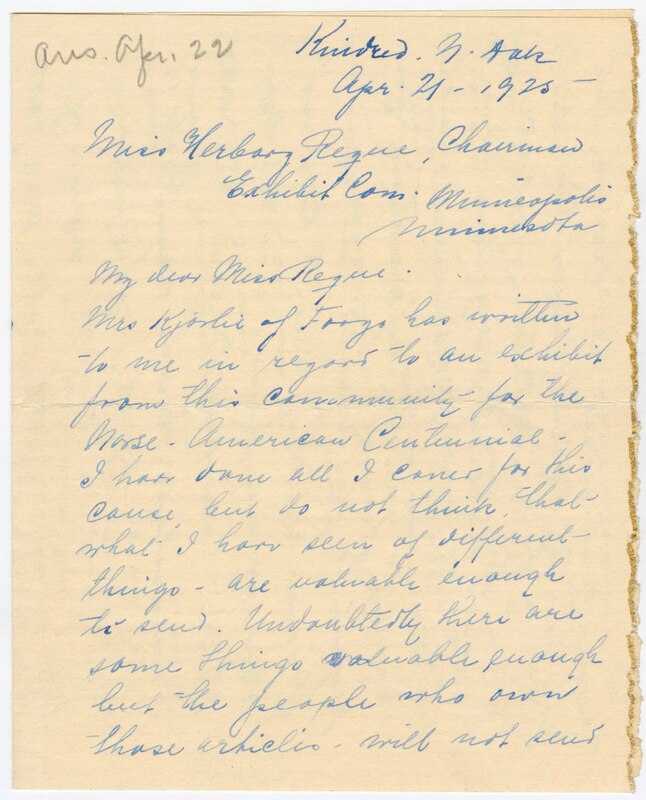 Ans. Apr. 22
Kindred. N. Dak
Apr. 21 - 1925 -
Miss Herborg Reque, Chairman
Exhibit Com. Minneapolis
Minnesota
My dear Miss Reque.
Mrs Kjorlie of Fargo has written
to me in regard to an exhibit
from this community for the
Norse-American Centennial -
I have done all I could for this
cause, but do not think, that
what I have seen of different
things - are valuable enough
to send. Undoubtedly there are
some things valuable enough
but the people who own
those articles - will not send